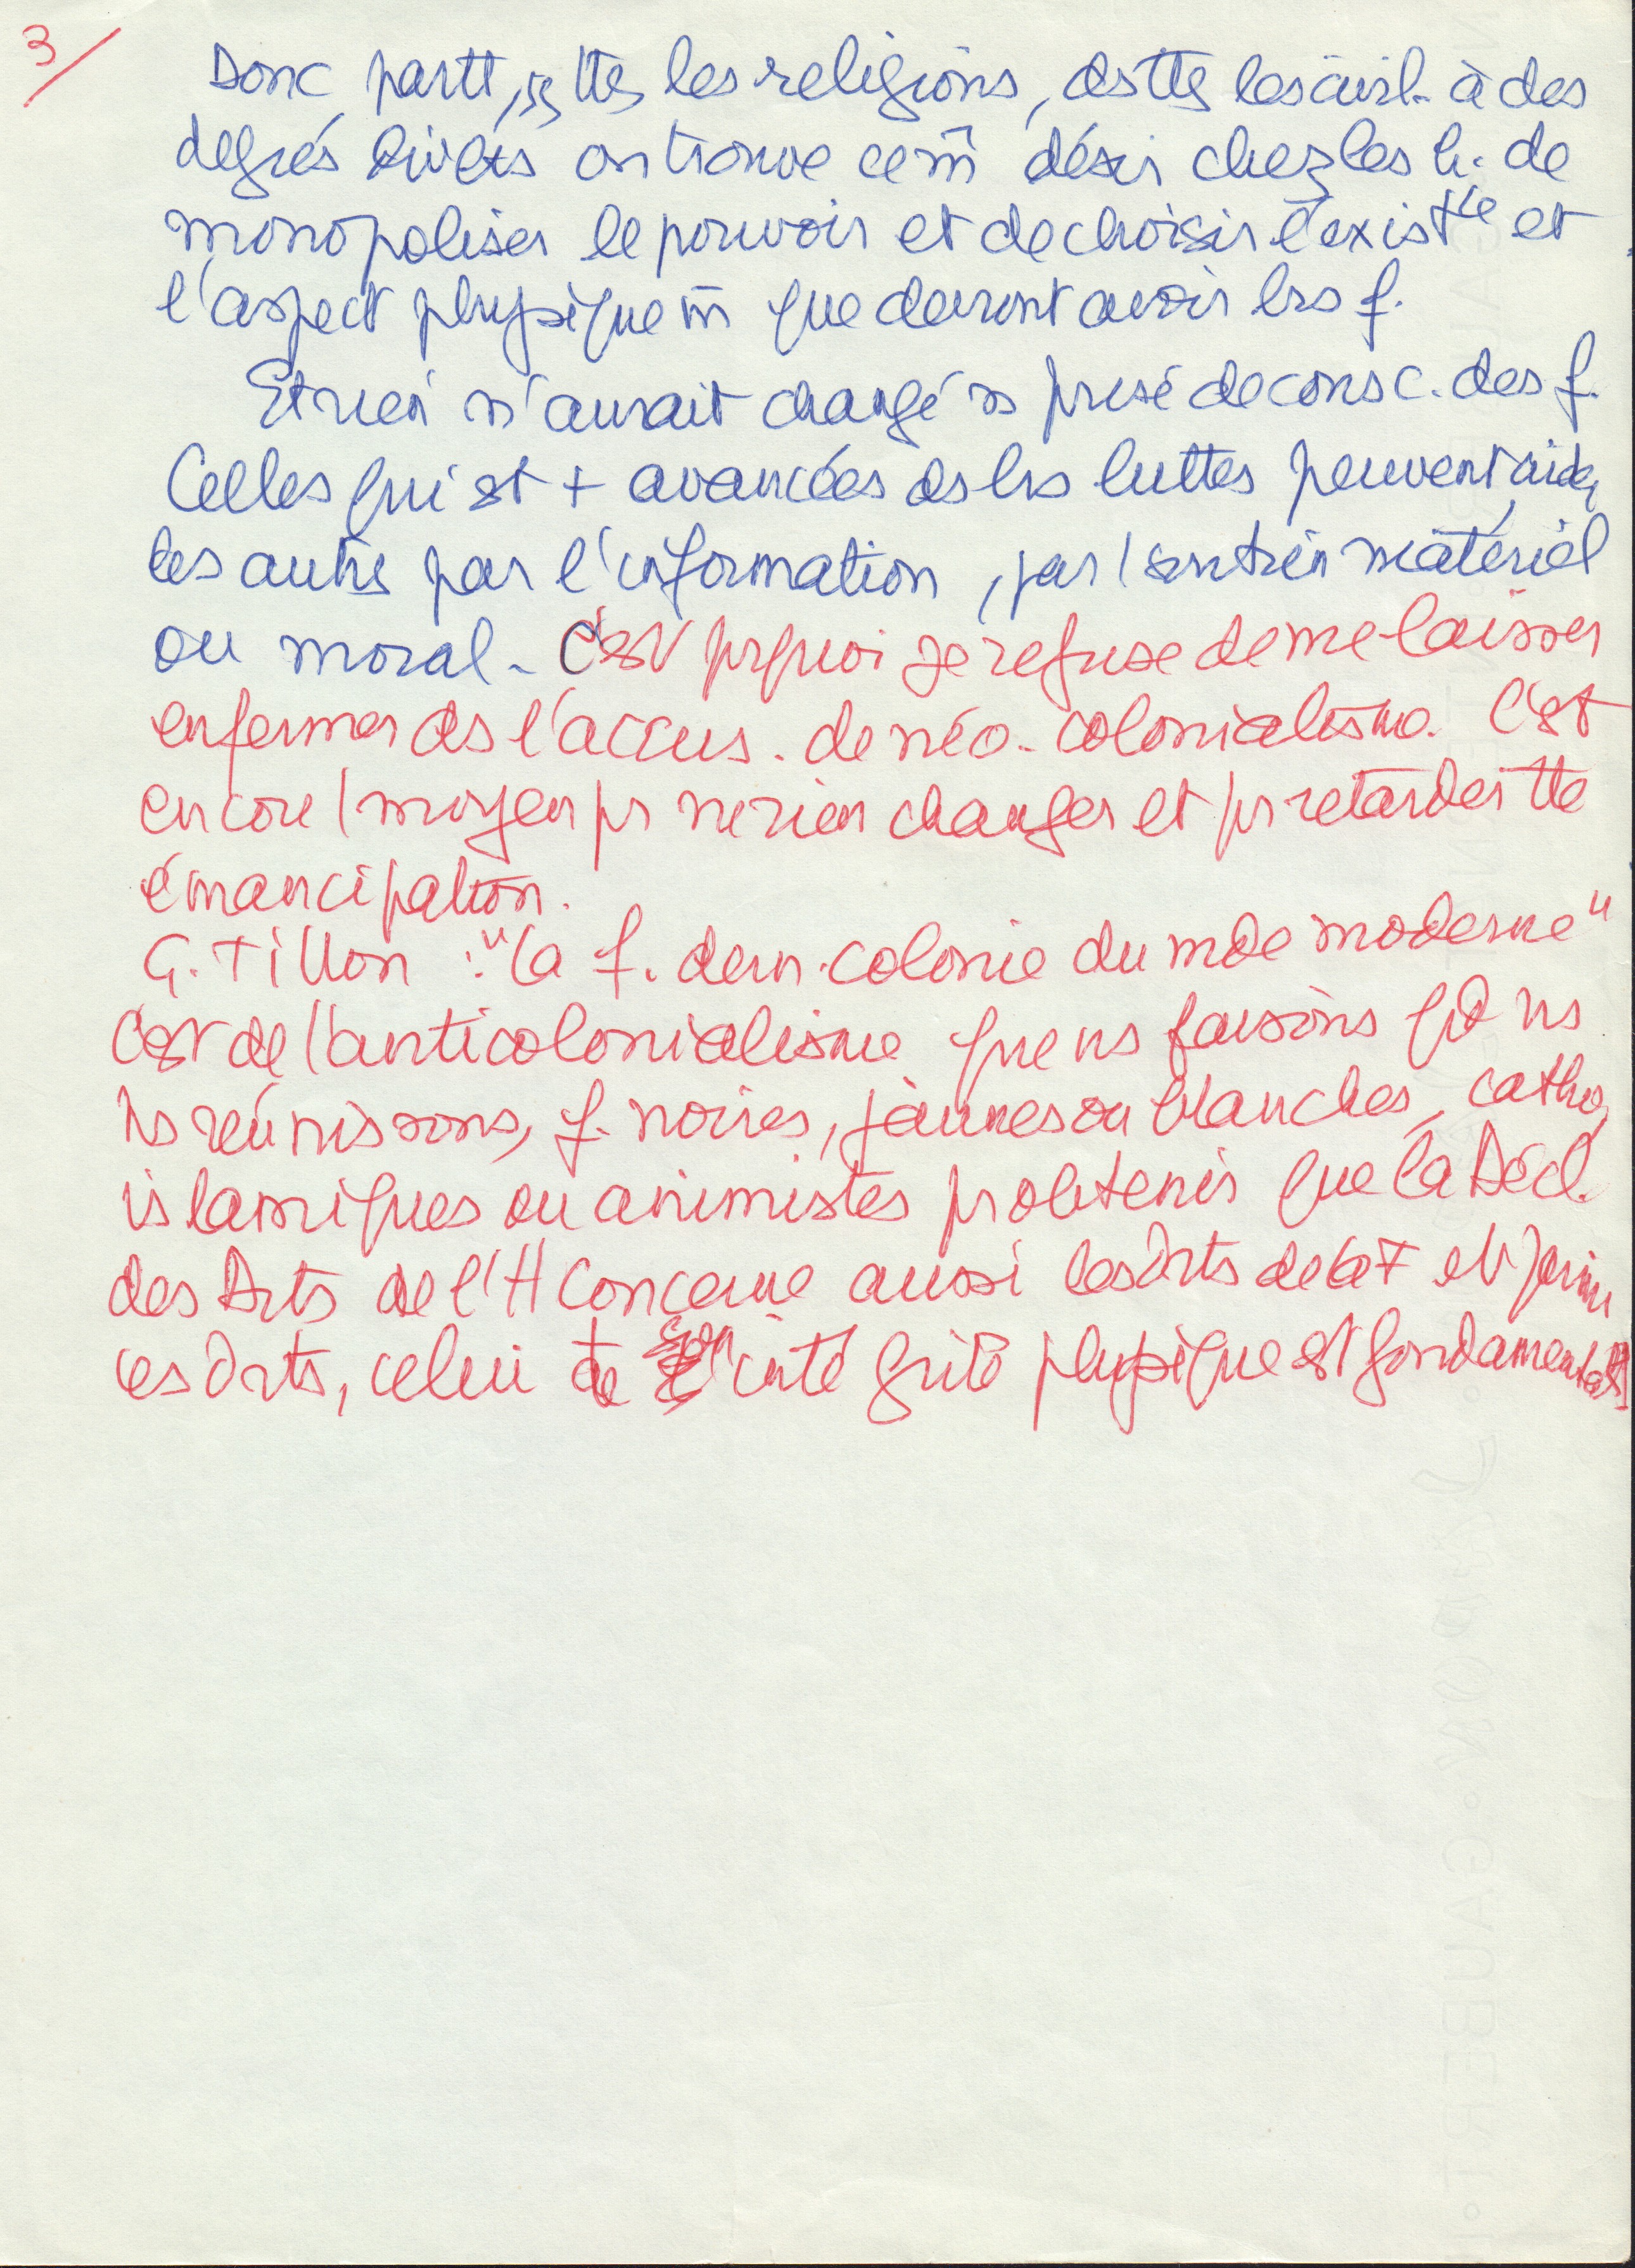 3/
Donc partt, ds ttes les religions, ds ttes les civil. à des
degrés divers on trouve ce m̂ désir chez les h. de
monopoliser le pouvoir et de choisir l'existce et
l'aspect physique m̂ que devront avoir lrs f.
Et rien n'aurait changé ss prise de consc. des f.
Celles qui st + avancées ds lrs luttes peuvent aider
les autres par l'information, par 1 soutien matériel
ou moral - C'est prquoi je refuse de me laisser
enfermer ds l'accus. de néo-colonialisme. C'est
encore 1 moyen pr ne rien changer et pr retarder tte
émancipation.
G. Tillon : "la f. dern. colonie du mde moderne"
C'est de l'anticolonialisme que ns faisons qd ns
ns réunissons, f. noires, jaunes ou blanches, cathos,
islamiques ou animistes pr obtenir que la Décl.
des Drts de l'H concerne aussi les Drts de la F et parmi
ces Drts, celui de l'intégrité physique est fondamental